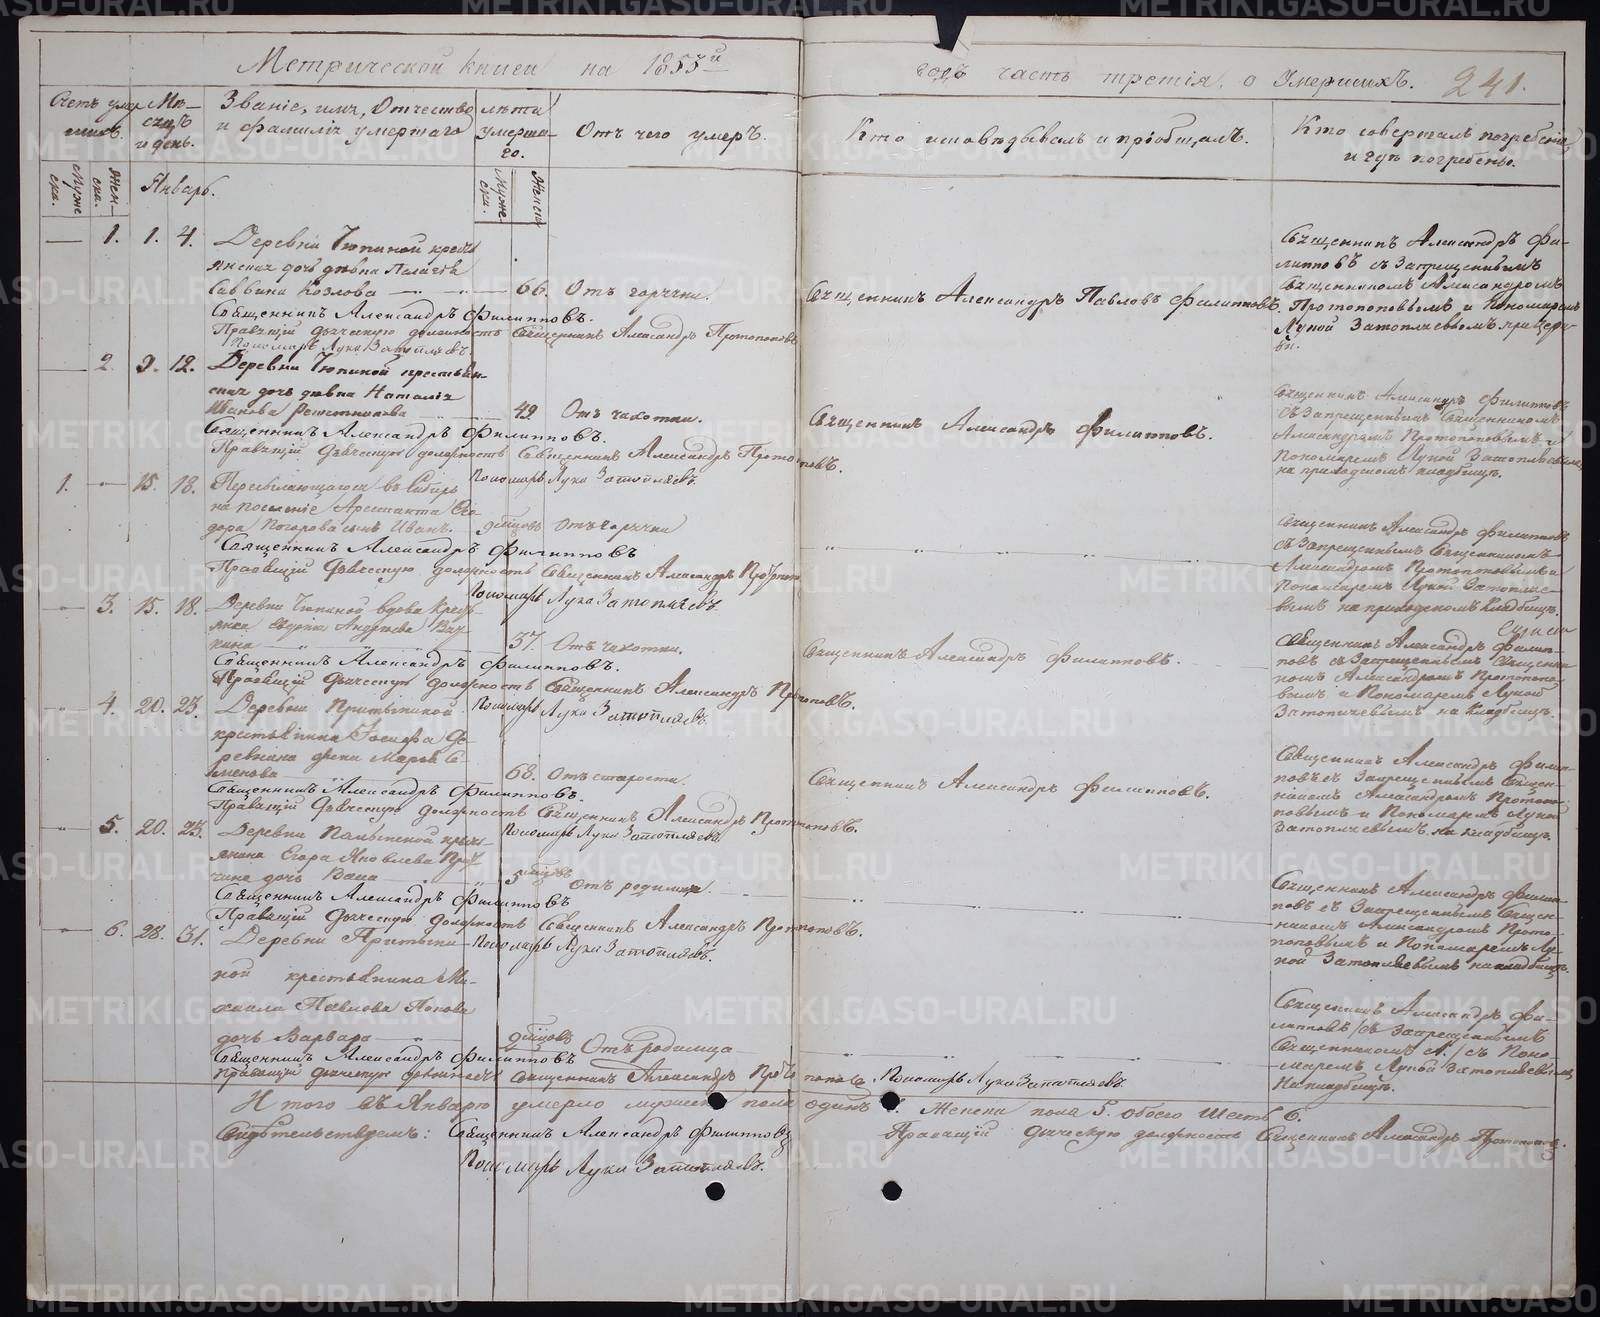 Метрической книги на 1855й
годъ часть третія, о Умершихъ. 241.
Счетъ умершихъ.
Мужеска.
Женска.
Мѣсяцъ и день.
Званіе, имя, Отчество
и фамилія умершаго
лѣта
Умершаго.
Мужески.
Женски
Отъ чего умеръ.
Кто исповѣдывалъ и пріобщалъ.
Кто совершалъ погребеніе
и гдѣ погребены.
Январь.
1. 1. 4. Деревни Тюпиной крестьянская дочь дѣвка Палагея
Саввина Козлова 66. Отъ горячки.
Священникъ Александръ Павловъ Филипповъ.
Священникъ Александръ Филипповъ съ Запрещеннымъ
Священникомъ Александромъ
Протопоповымъ и Пономаремъ
Лукой Затопляевымъ при церкви.
Священникъ Александръ Филипповъ.
Правящій дьяческую должность Священникъ Александръ Протопоповъ
Пономарь Лука Затопляевъ.
2. 9. 12. Деревни Тюпиной крестьянская дочь дѣвка Наталія
Иванова 49 Отъ чахотки.
Священникъ Александръ Филипповъ.
Священникъ Александръ Филипповъ
съ Запрещеннымъ Священникомъ
Александромъ Протопоповымъ и
Пономаремъ Лукой Затопляевымъ
на приходскомъ кладбищѣ.
Священникъ Александръ Филипповъ.
Правящій дьяческую должность Священникъ Александръ Протопоповъ.
Пономарь Лука Затопляевъ.
1. 15. 18. Пересылающагося въ Сибирь
на поселеніе Арестанта сынъ Иванъ. Отъ горячки
Священникъ Александръ Филипповъ
съ Запрещеннымъ Священникомъ
Александромъ Протопоповымъ и
Пономаремъ Лукой Затопляевымъ на приходскомъ Кладбищѣ.
Священникъ Александръ Филипповъ
Правящій дьяческую должность Священникъ Александръ
Пономарь Лука Затопляевъ
3. 15. 18. Деревни Тюпиной вдова
Андреева 57. Отъ чахотки.
Священникъ Александръ Филипповъ.
Священникъ Александръ Филипповъ съ Запрещеннымъ Священникомъ Александромъ Протопоповымъ и Пономаремъ Лукой
Затопляевымъ на Кладбищѣ.
Священникъ Александръ Филипповъ.
Правящій дьяческую должность Священникъ Александръ Протопоповъ.
Пономарь Лука Затопляевъ.
4. 20. 23. Деревни
крестьянина жена Марья Семенова 68. Отъ старости.
Священникъ Александръ Филипповъ.
Священникъ Александръ Филипповъ съ Запрещеннымъ Священникомъ Александромъ Протопоповымъ и Пономаремъ Лукой
Затопляевымъ на кладбищѣ.
Священникъ Александръ Филипповъ.
Правящій дьяческую должность Священникъ Александръ Протопоповъ.
Пономарь Лука Затопляевъ.
5. 20. 23. Деревни крестьянина Егора Яковлева
дочь 5 Отъ родимца.
Священникъ Александръ Филипповъ съ Запрещеннымъ Священникомъ Александромъ Протопоповымъ и Пономаремъ Лукой Затопляевымъ на кладбищѣ.
Священникъ Александръ Филипповъ
Правящій дьяческую должность Священникъ Александръ Протопоповъ.
Пономарь Лука Затопляевъ.
6. 28. 31. Деревни
крестьянина Михаила Павлова Попова
дочь Варвара Отъ родимца
Священникъ Александръ Филипповъ съ Запрещеннымъ
Священникомъ А. съ Пономаремъ Лукой Затопляевымъ
На кладбищѣ.
Священникъ Александръ Филипповъ
Правящій дьяческую должность Священникъ Александръ Протопоповъ Пономарь Лука Затопляевъ
Итого въ Январѣ умерло мужеска пола одинъ 1. Женска пола 5. обоего Шесть 6.
Свидѣтельствуемъ: Священникъ Александръ Филипповъ
Правящій дьяческую должность Священникъ Александръ Протопоповъ.
Пономарь Лука Затопляевъ.
METRIKI.GASO-URAL.RU